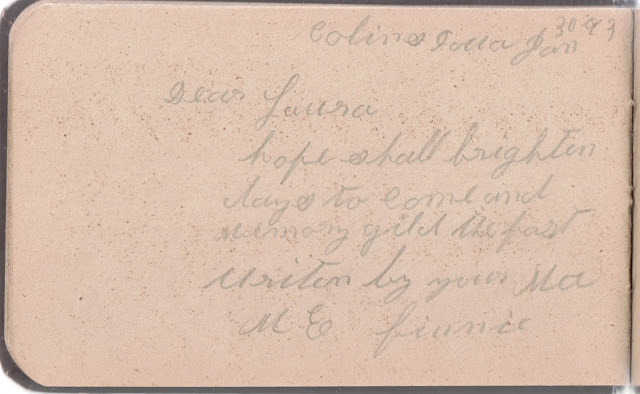 Colins Iowa Jan 30 93
Dear Laura
hope shall brighten
days to come and
memory gild the past
writen by your Ma
M E